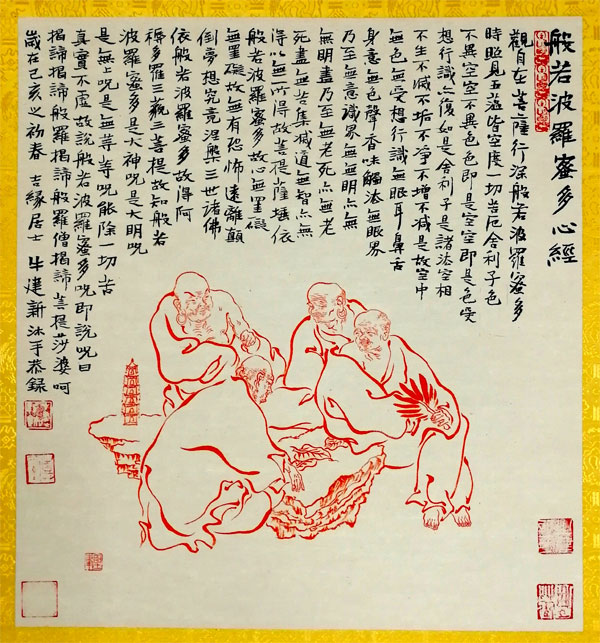 般若波羅蜜多心經
觀自在菩薩行深般若波羅蜜多
時照見五蘊皆空度一切苦厄舍利子色
不異空空不異色色即是空空即是色受
想行識亦復如是舍利子是諸法空相
不生不滅不垢不淨不增不減是故空中
無色無受想行識無眼耳鼻舌
身意無色聲香味觸法無眼界
乃至無意識界無無明亦無
無明盡乃至無老死亦無老
死盡無苦集滅道無智亦無
得以無所得故菩提薩埵依
般若波羅蜜多故心無罣礙
無罣礙故無有恐怖遠離顛
倒夢想究竟涅槃三世諸佛
依般若波羅蜜多故得阿
耨多羅三藐三菩提故知般若
波羅蜜多是大神咒是大明咒
是無上咒是無等等咒能除一切苦
真實不虛故說般若波羅蜜多咒即說咒曰
揭諦揭諦般羅揭諦般羅僧揭諦菩提莎婆呵
歲在己亥之初春 吉緣居士 牛建新沐手恭錄